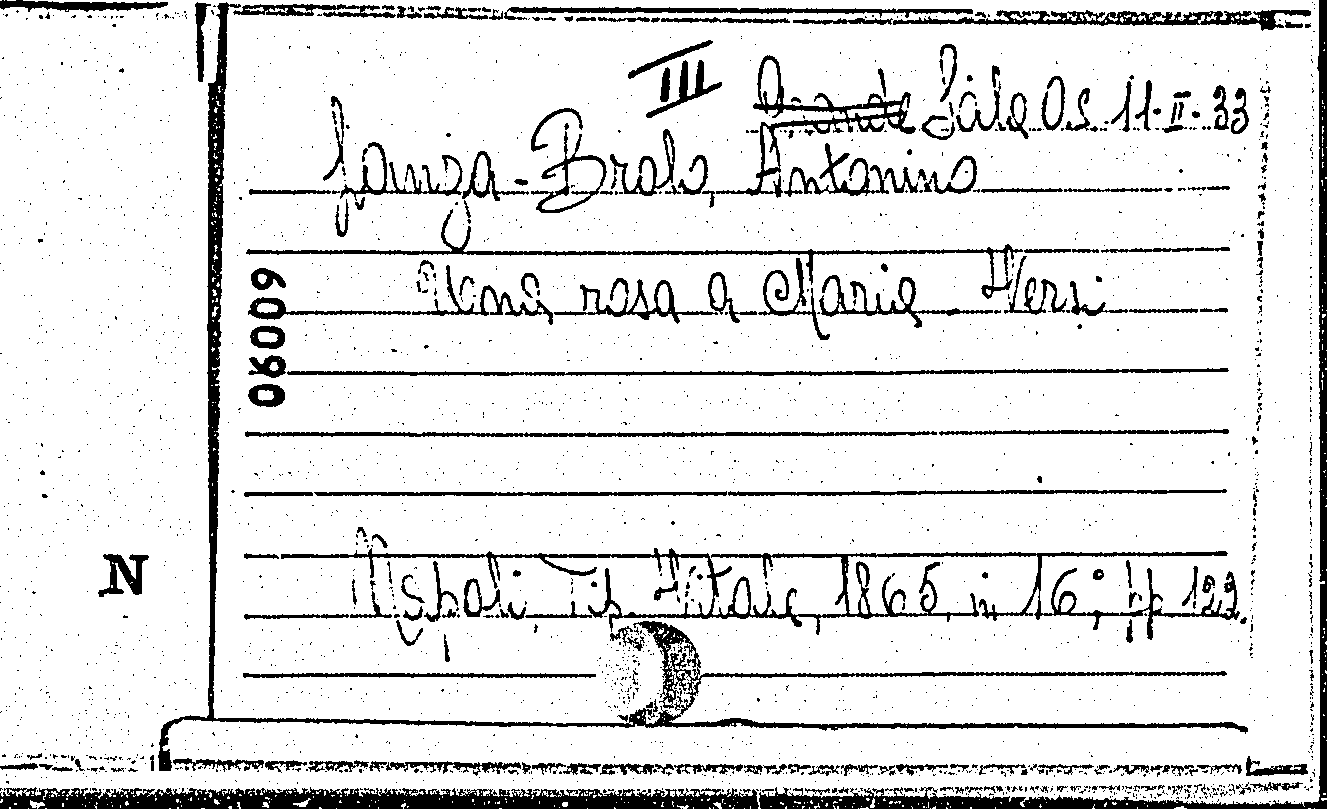 III Grande Sala Os 11-II-33
Lanza-Brolo, Antonino
Una rosa a Maria - Versi
06009
N
Napoli, Tip. Vitale, 1865, in 16°, pp 122.